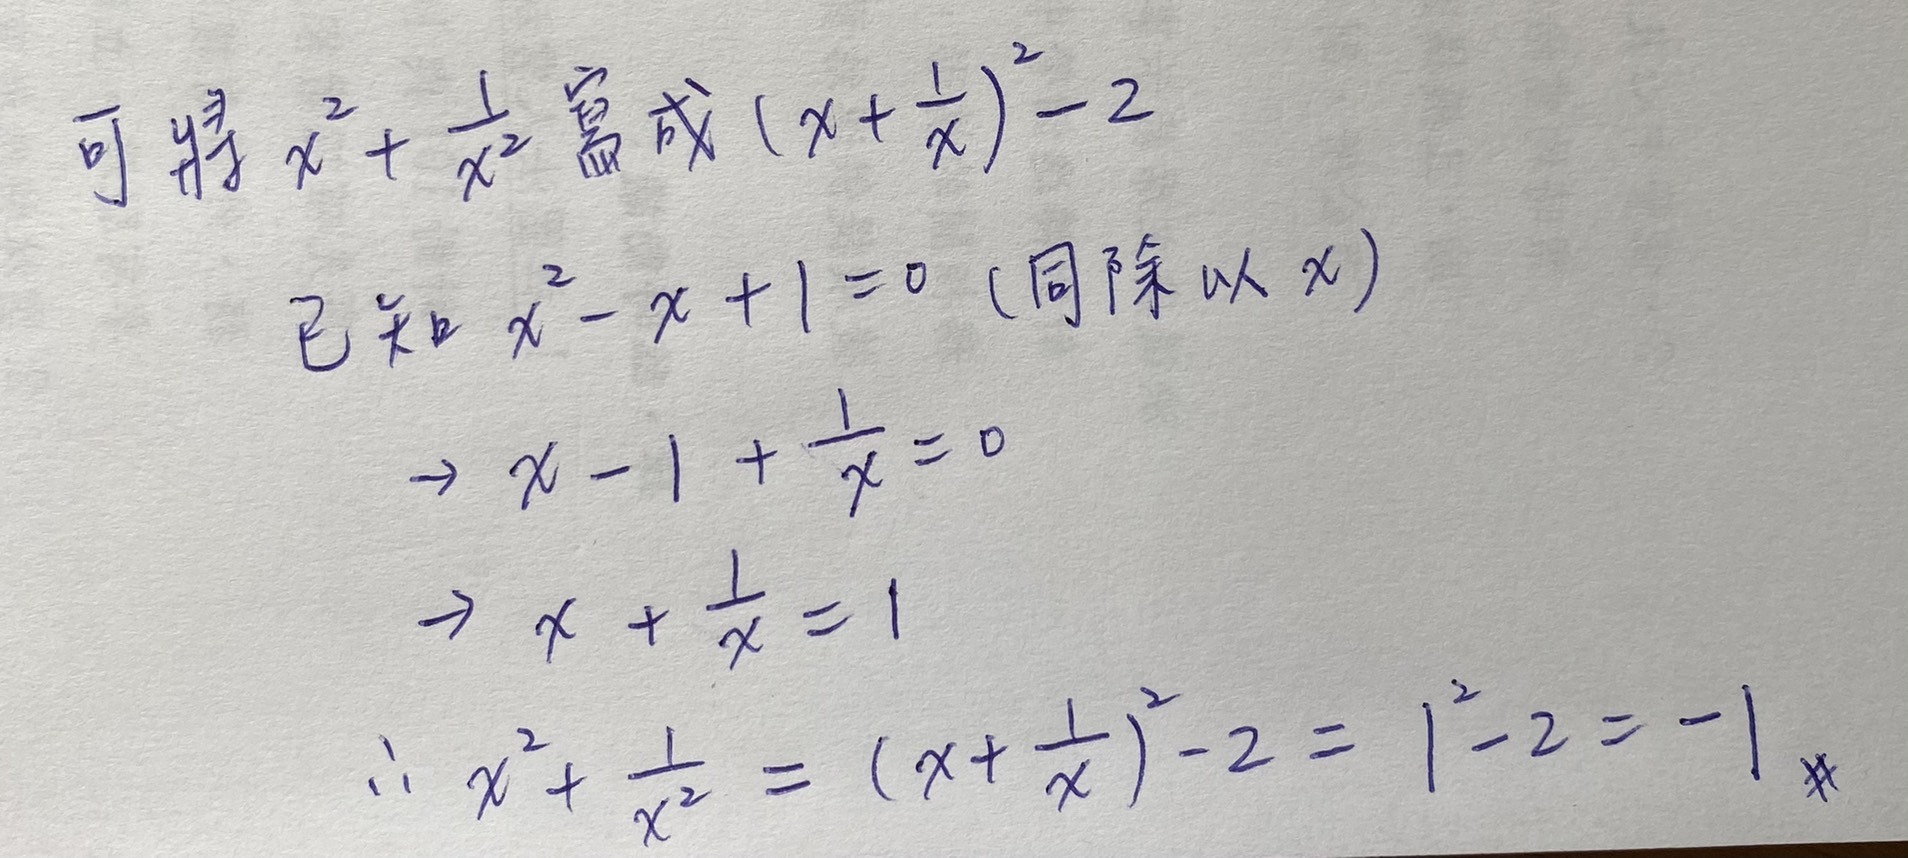 可將 x² + 1/x² 寫成 (x + 1/x)² - 2
已知 x² - x + 1 = 0 (同除以 x)
→ x - 1 + 1/x = 0
→ x + 1/x = 1
∴ x² + 1/x² = (x + 1/x)² - 2 = 1² - 2 = -1 #